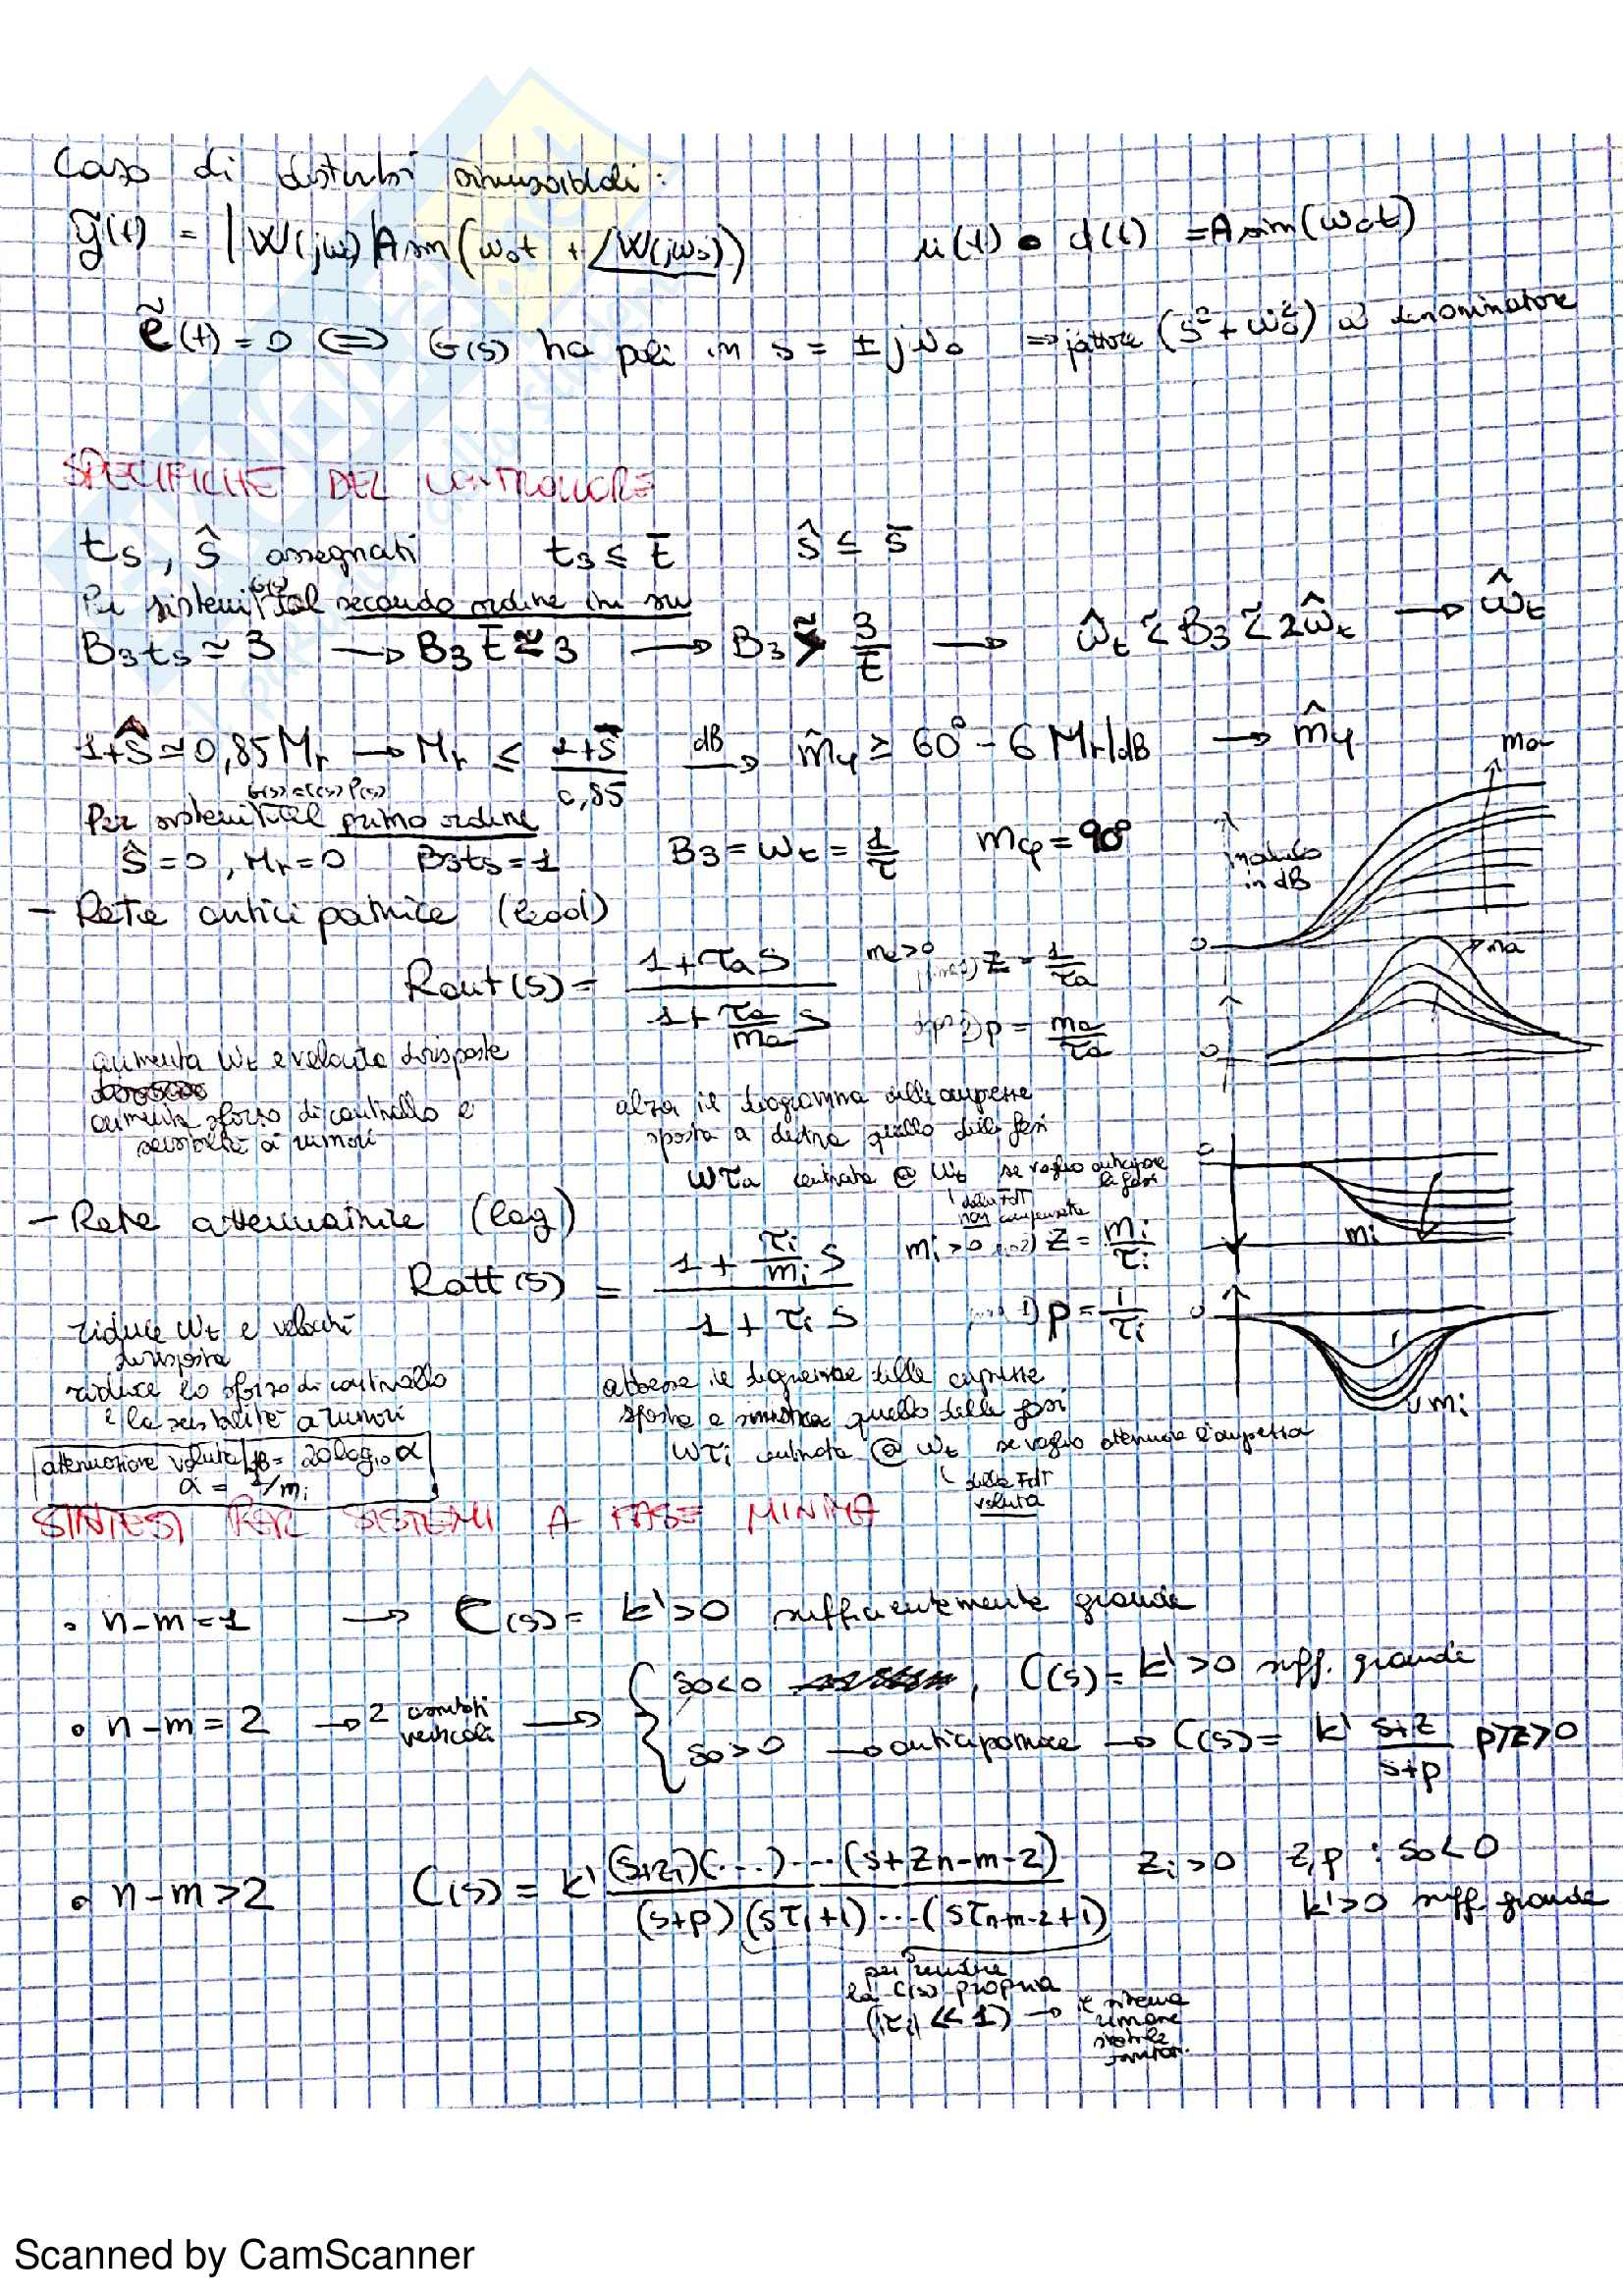 Caso di disturbi sinusoidali:
ỹ(t) = |W(jω₀)|A sin(ω₀t + ∠W(jω₀)) u(t) o d(t) = A sin(ω₀t)
ẽ(t) = 0 ⟺ G(s) ha poli in s = ± jω₀ ⇒ fattore (s² + ω₀²) a denominatore
SPECIFICHE DEL CONTROLLORE
ts, ŝ assegnati ts ≤ t̄ ŝ ≤ s̄
Per sistemi G(s) del secondo ordine in su
B3 ts ≃ 3 → B3 t̄ ≃ 3 → B3 ≳ 3/t̄ → ω̂t ≲ B3 ≲ 2ω̂t → ω̂t
1+ŝ ≃ 0,85 Mr → Mr ≤ (1+s̄)/0,85 dB→ m̂φ ≥ 60° - 6 Mr|dB → m̂φ
G(s)=C(s)P(s)
Per sistemi del primo ordine
ŝ = 0, Mr = 0 B3ts = 1 B3 = ωt = 1/τ mφ = 90°
ma
modulo
in dB
0
- Rete anticipatrice (lead)
Raut(s) = (1+τa s)/(1+ τa/ma s) ma>0 z = 1/τa
p = ma/τa
ma
0
aumenta ωt e velocità di risposta
aumenta sforzo di controllo e
sensibilità ai rumori
alza il diagramma delle ampiezze
sposta a destra quello delle fasi
ωτa centrata @ ωt se voglio anticipare
la fase
della FdT
non compensata
- Rete attenuatrice (lag)
Ratt(s) = (1 + τi/mi s)/(1 + τi s) mi>0 z = mi/τi
p = 1/τi
0
mi
0
mi
riduce ωt e velocità
di risposta
riduce lo sforzo di controllo
e la sensibilità a rumori
attenuazione voluta|dB = 20log₁₀ α
α = 1/mi
abbassa il diagramma delle ampiezze
sposta a sinistra quello delle fasi
ωτi centrata @ ωt se voglio attenuare l'ampiezza
della FdT
voluta
SINTESI PER SISTEMI A FASE MINIMA
• n-m=1 → C(s) = k'>0 sufficientemente grande
• n-m=2 → 2 asintoti verticali → { s₀<0 , C(s) = k'>0 suff. grande
s₀>0 → anticipatrice → C(s) = k' (s+z)/(s+p) p>z>0
• n-m>2 C(s) = k' (s+z₁)(...)...(s+zn-m-2)/(s+p)(sτ₁+1)...(sτn-m-2+1) zi>0 z,p : s₀<0
k'>0 suff. grande
per rendere
la C(s) propria
(|τi| << 1) → il sistema
rimane
stabile
Scanned by CamScanner